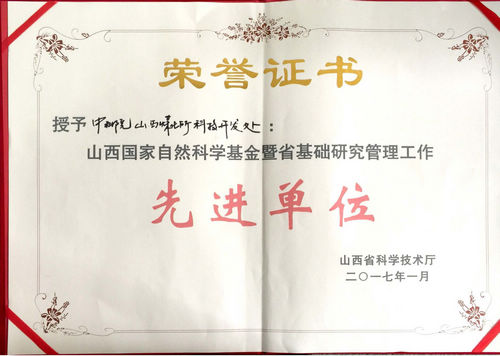 荣誉证书
授予中科院山西煤化所科技开发处：
山西国家自然科学基金暨省基础研究管理工作
先进单位
山西省科学技术厅
二〇一七年一月